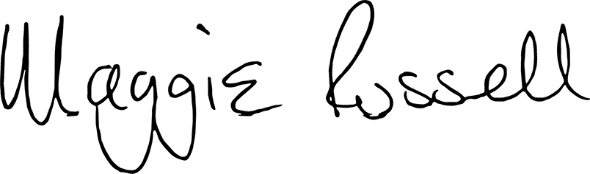 Maggie Russell